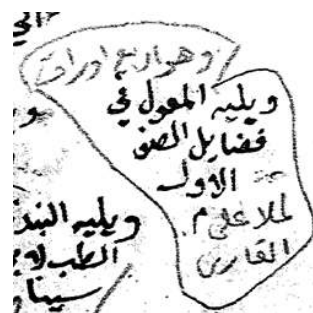 وهو اربع اوراق
ويليه المعول في
فضايل الصف
الاول
لملا علي م
القاري
ويليه
الطب لا
سينا